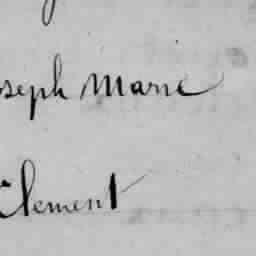 oseph Marie
Clement